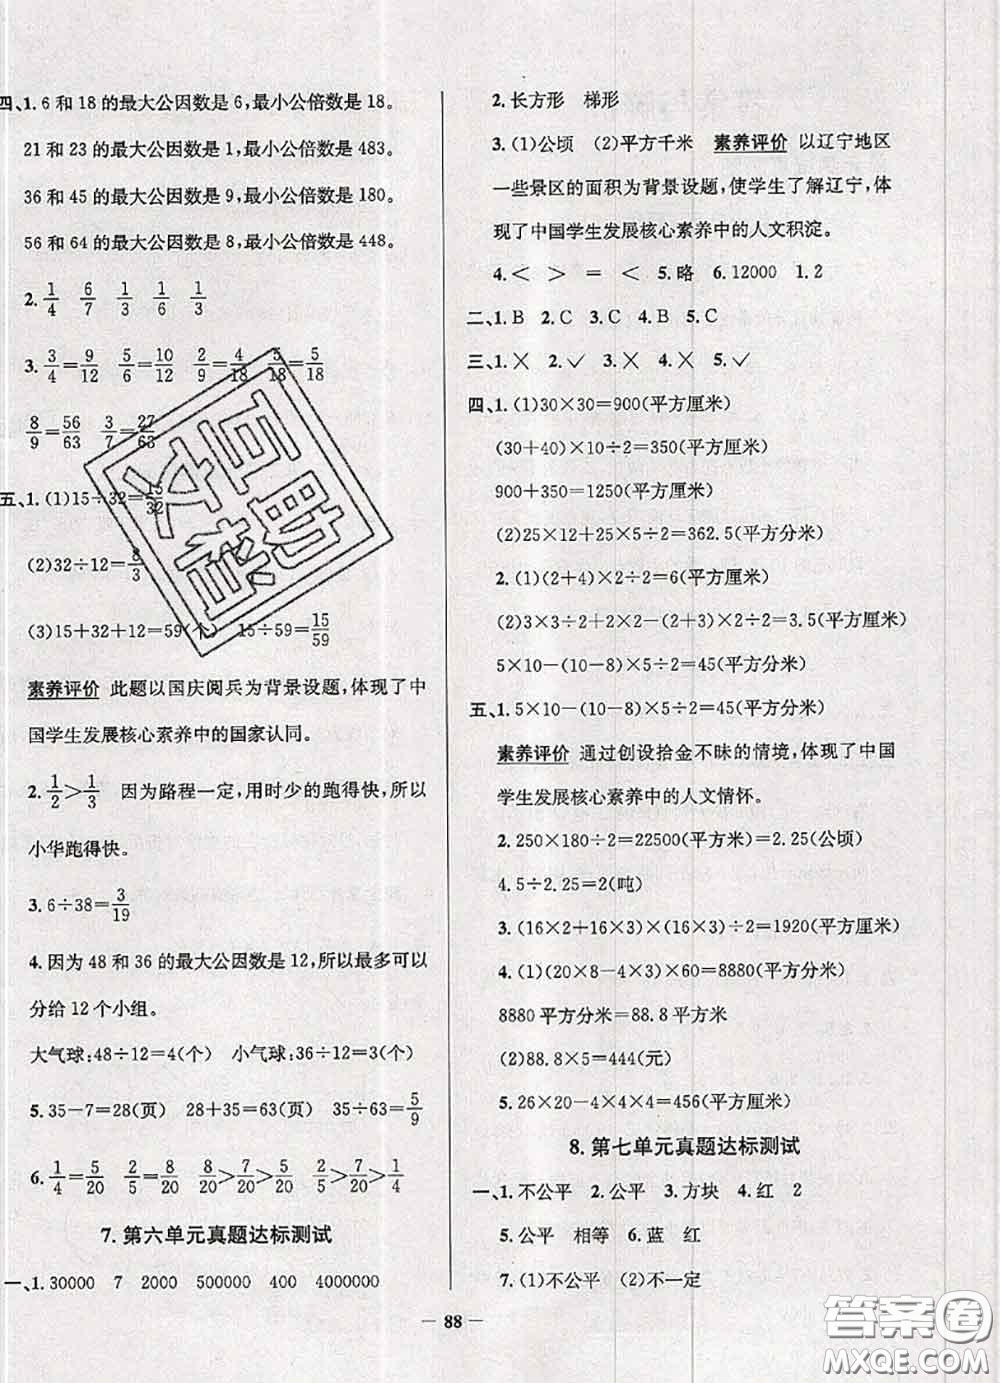 四、1. 6 和 18 的最大公因数是 6,最小公倍数是 18。
21 和 23 的最大公因数是 1,最小公倍数是 483。
36 和 45 的最大公因数是 9,最小公倍数是 180。
56 和 64 的最大公因数是 8,最小公倍数是 448。
2. 1/4 6/7 1/3 1/6 1/3
3. 3/4=9/12 5/6=10/12 2/9=4/18 5/18=5/18
8/9=56/63 3/7=27/63
五、1. (1)15÷32=15/32
(2)32÷12=8/3
(3)15+32+12=59(个) 15÷59=15/59
素养评价 此题以国庆阅兵为背景设题,体现了中
国学生发展核心素养中的国家认同。
2. 1/2>1/3 因为路程一定,用时少的跑得快,所以
小华跑得快。
3. 6÷38=3/19
4. 因为 48 和 36 的最大公因数是 12,所以最多可以
分给 12 个小组。
大气球:48÷12=4(个) 小气球:36÷12=3(个)
5. 35-7=28(页) 28+35=63(页) 35÷63=5/9
6. 1/4=5/20 2/5=8/20 8/20>7/20>5/20 2/5>7/20>1/4
7. 第六单元真题达标测试
一、1. 30000 7 2000 500000 400 4000000
2. 长方形 梯形
3. (1)公顷 (2)平方千米 素养评价 以辽宁地区
一些景区的面积为背景设题,使学生了解辽宁,体
现了中国学生发展核心素养中的人文积淀。
4. < > = < 5. 略 6. 12000 1.2
二、1. B 2. C 3. C 4. B 5. C
三、1. × 2. ✓ 3. × 4. × 5. ✓
四、1. (1)30×30=900(平方厘米)
(30+40)×10÷2=350(平方厘米)
900+350=1250(平方厘米)
(2)25×12+25×5÷2=362.5(平方分米)
2. (1)(2+4)×2÷2=6(平方厘米)
(2)3×3÷2+2×2-(2+3)×2÷2=3.5(平方分米)
5×10-(10-8)×5÷2=45(平方分米)
五、1. 5×10-(10-8)×5÷2=45(平方分米)
素养评价 通过创设拾金不昧的情境,体现了中国
学生发展核心素养中的人文情怀。
2. 250×180÷2=22500(平方米)=2.25(公顷)
4.5÷2.25=2(吨)
3. (16×2+16×3)×(16×3)÷2=1920(平方厘米)
4. (1)(20×8-4×3)×60=8880(平方分米)
8880 平方分米=88.8 平方米
(2)88.8×5=444(元)
5. 26×20-4×4×4=456(平方厘米)
8. 第七单元真题达标测试
一、1. 不公平 2. 公平 3. 方块 4. 红 2
5. 公平 相等 6. 蓝 红
7. (1)不公平 (2)不一定
88
互助文档
答案圈
MXQE.COM